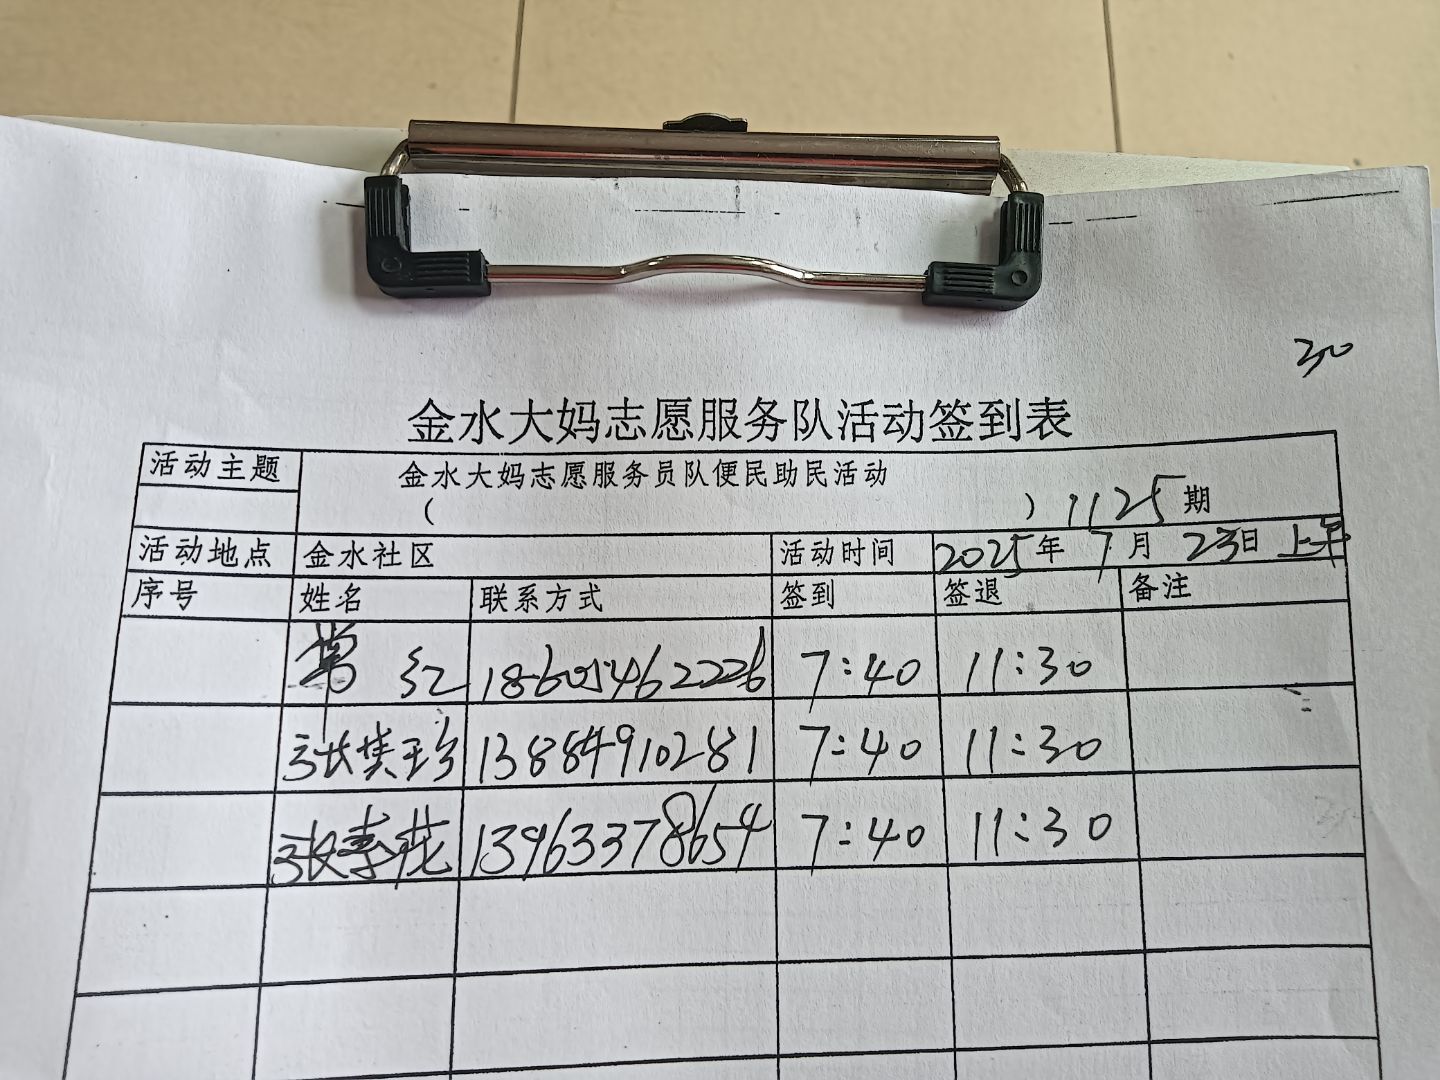 30
金水大妈志愿服务队活动签到表
活动主题 金水大妈志愿服务员队便民助民活动
( ) 1125期
活动地点 金水社区 活动时间 2025年 7月 23日 上午
序号 姓名 联系方式 签到 签退 备注
红 18605462226 7:40 11:30
张英珍 13884910281 7:40 11:30
张春花 13963378654 7:40 11:30